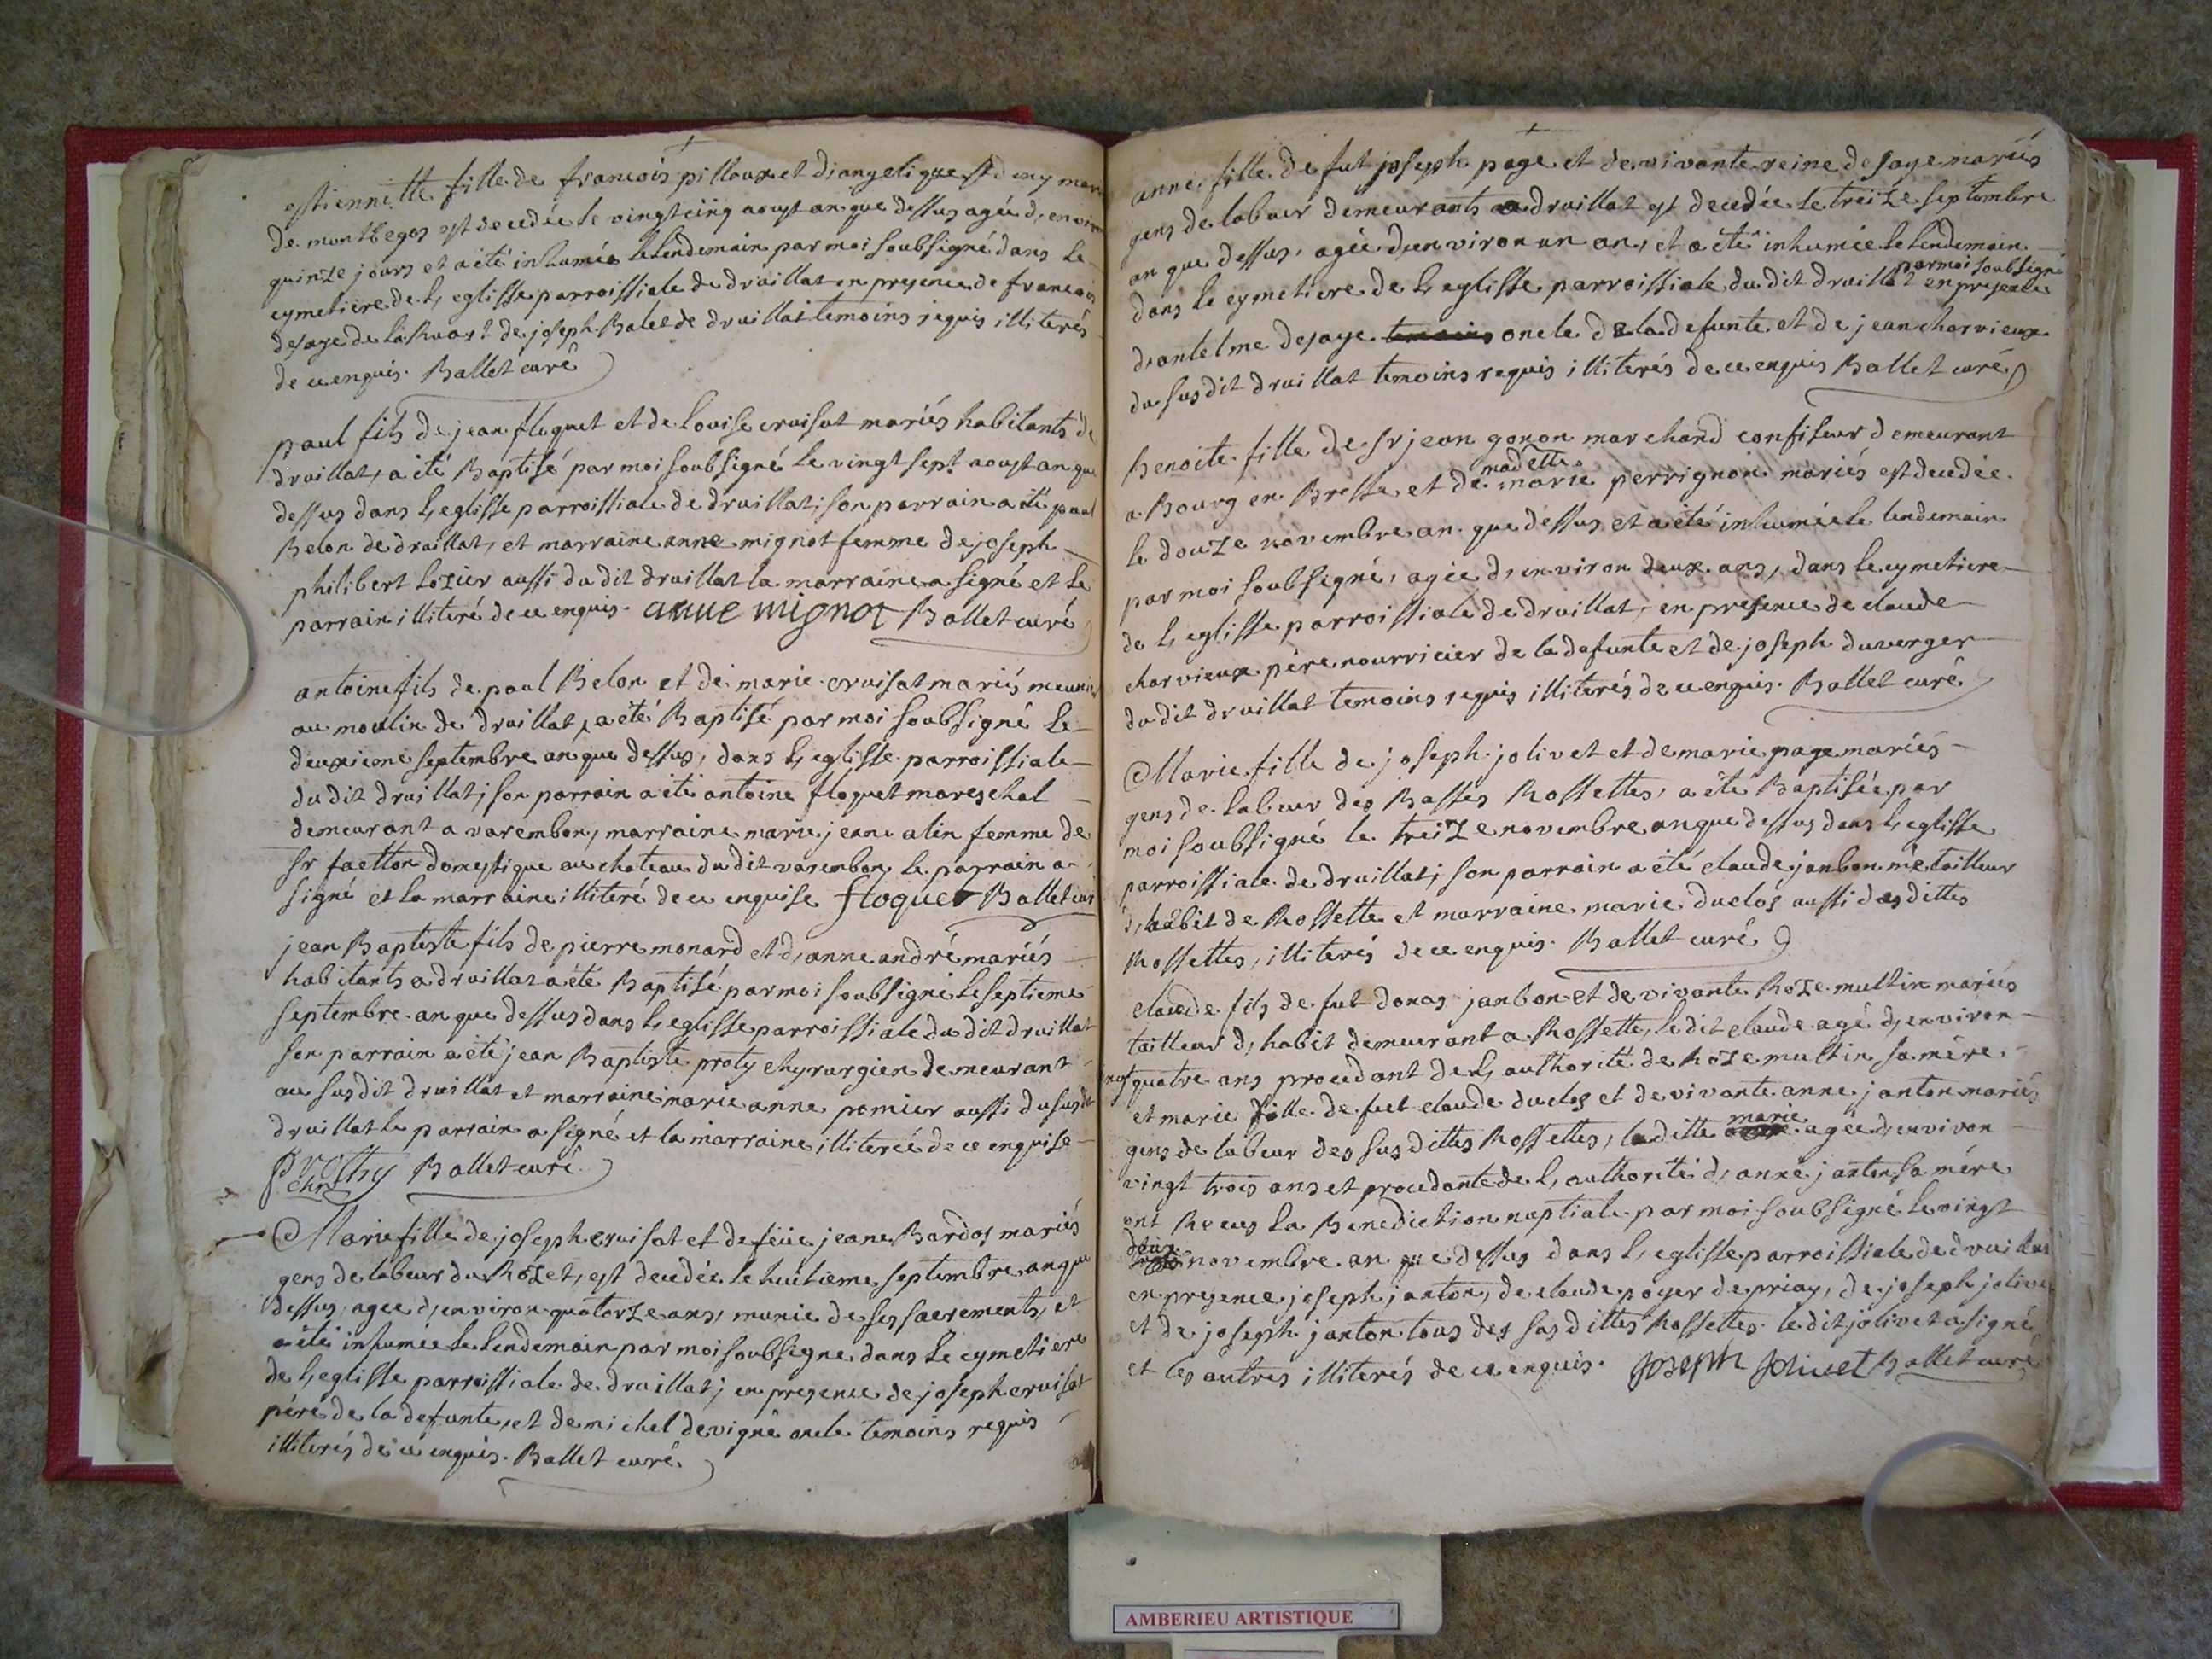 estiennette fille de francois pilloux et d'angelique
de montbegos est decedée le vingt cinq aoust an que dessus agée d, environ
quinze jours et a été inhumée le lendemain par moi soubsigné dans le
cymetiere de l, eglisse parroissiale de druillat en presence de francois
desaye de et de joseph Balet de druillat temoins requis illiterés
de ce enquis. Ballet curé
paul fils de jean floquet et de Louise cruisat mariés habitants de
druillat, a été Baptisé par moi soubsigné le vingt sept aoust an que
dessus dans l, eglisse parroissiale de druillat; son parrain a été paul
Belon de druillat, et marraine anne mignot femme de joseph
philibert Lozier aussi du dit druillat la marraine a signé et le
parrain illiteré de ce enquis. anne mignot Ballet curé
antoine fils de paul Belon et de marie cruisat mariés meunier
au moulin de druillat, a été Baptisé par moi soubsigné le
deuxieme septembre an que dessus, dans l, eglisse parroissiale
du dit druillat; son parrain a été antoine floquet mareschal
demeurant a varembon, marraine marie jeane alin femme de
sr faetton domestique au chateau du dit varembon le parrain a
signé et la marraine illiteré de ce enquise floquet Ballet curé
jean Baptiste fils de pierre monard et d, anne andré mariés
habitants a druillat a été Baptisé par moi soubsigné le septieme
septembre an que dessus dans l, eglisse parroissiale du dit druillat
son parrain a été jean Baptiste proty chyrurgien demeurant
au susdit druillat et marraine marie anne pomier aussi du susdit
druillat le parrain a signé et la marraine illiterée de ce enquise
Prothy Ballet curé
chr
Marie fille de joseph cruisat et de feüe jeane Bardos mariés
gens de labeur du Rozet, est decedée le huitieme septembre an que
dessus, agee d, environ quatorze ans, munie de ses sacrements, et
a été inhumée le lendemain par moi soubsigne dans le cymetiere
de l, eglisse parroissiale de druillat; en presence de joseph cruisat
pére de la defunte, et de michel devigne oncle temoins requis
illiterés de ce enquis. Ballet curé.
anne, fille de fut joseph page et de vivante reine desaye mariés
gens de labour demeurants a druillat est decedée le treize septembre
an que dessus, agée d,environ un an, et a été inhumée le lendemain
par moi soubsigné
dans le cymetiere de l, eglisse parroissiale du dit druillat en presence
d'antelme desaye oncle de la defunte et de jean charvieux
du susdit druillat temoins requis illiterés de ce enquis Ballet curé
Benoite fille de sr jean gonon marchand confiseur demeurant
madelle
a Bourg en Bresse et de marie perrignon mariés est decedée
le douze novembre an que dessus, et a été inhumée le lendemain
par moi soubsigné, agée d, environ deux ans, dans le cymetiere
de l, eglisse parroissiale de druillat, en presence de claude
charvieux pére nourricier de la defunte et de joseph duverger
du dit druillat temoins requis illiterés de ce enquis. Ballet curé
Marie fille de joseph jolivet et de marie page mariés
gens de labeur des Basses Rossettes, a été Baptisée par
moi soubsigné le treize novembre an que dessus dans l, eglisse
parroissiale de druillat; son parrain a été claude janbon me tailleur
d, habit de Rossette et marraine marie duclos aussi des dittes
Rossettes, illiterés de ce enquis. Ballet curé
claude fils de fut donas janbon et de vivante Roze multin mariés
tailleur d, habit demeurant a Rossette, le dit claude agé d, environ
quatre ans procedant de l, authorité de Roze multin sa mère
et marie fille de fut claude duclos et de vivante anne janton mariés
marie
gens de labeur des sus dittes Rossettes, la ditte agée d, environ
vingt trois ans et procedante de l, authorité d, anne janton sa mére
ont Receus la Benediction nuptiale par moi soubsigné le vingt
deux
novembre an que dessus dans l, eglisse parroissiale de druillat
en presence joseph janton, de claude poyer de priay, de joseph jolivet
et de joseph janton tous des sus dittes Rossettes le dit jolivet a signé
et les autres illiterés de ce enquis. Joseph Jolivet Ballet curé
AMBERIEU ARTISTIQUE